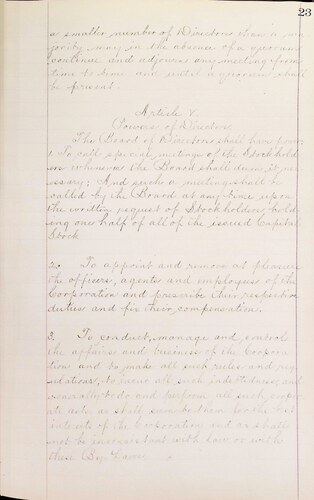 23
a smaller number of Directors than a ma-
jority may in the absence of a quorum
continue and adjourn any meeting from
time to time and until a quorum shall
be present.
Article V.
Powers of Directors
The Board of Directors shall have power:
1. To call special meetings of the Stockhold-
ers whenever the Board shall deem it nec-
essary; And such a meeting shall be
called by the Board at any time upon
the written request of Stockholders hold-
ing one half of all of the issued Capital
Stock
2. To appoint and remove at pleasure
the officers, agents and employees of the
Corporation and prescribe their respective
duties and fix their compensation.
3. To conduct, manage and control
the affairs and business of the Corpora-
tion and to make all such rules and reg-
ulations, to incur all such indebtedness, and
generally to do and perform all such
acts as shall seem to them for the best
interests of the Corporation, and as shall
not be inconsistent with law or with
these By-Laws.